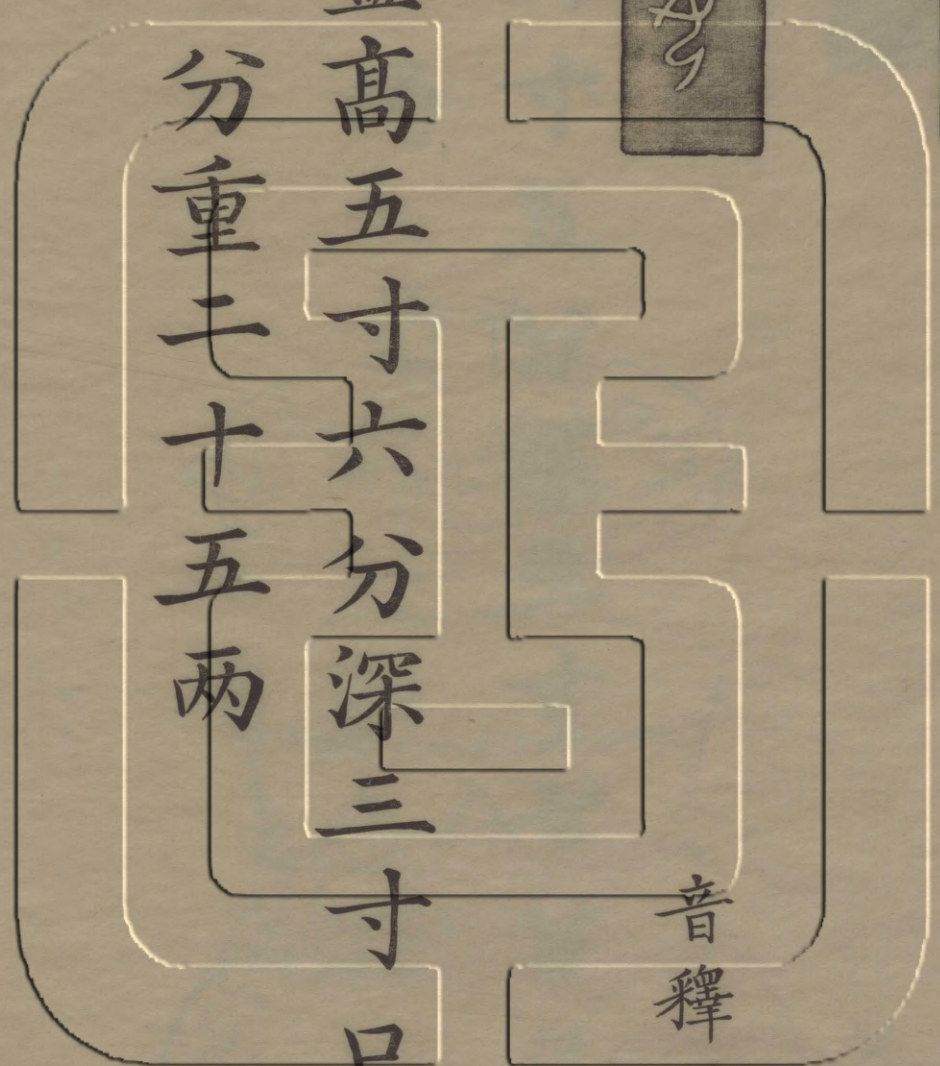 音釋
高五寸六分深三寸口
分重二十五两